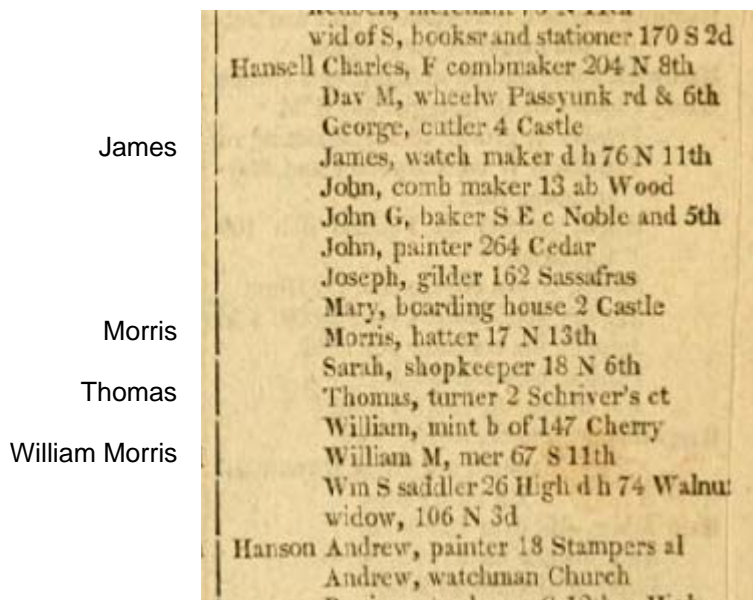 wid of S, booksr and stationer 170 S 2d
Hansell Charles, F combmaker 204 N 8th
Dav M, wheelw Passyunk rd & 6th
George, cutler 4 Castle
James James, watch maker d h 76 N 11th
John, comb maker 13 ab Wood
John G, baker S E c Noble and 5th
John, painter 264 Cedar
Joseph, gilder 162 Sassafras
Mary, boarding house 2 Castle
Morris Morris, hatter 17 N 13th
Sarah, shopkeeper 18 N 6th
Thomas Thomas, turner 2 Schriver's ct
William, mint b of 147 Cherry
William Morris William M, mer 67 S 11th
Wm S saddler 26 High d h 74 Walnut
widow, 106 N 3d
Hanson Andrew, painter 18 Stampers al
Andrew, watchman Church